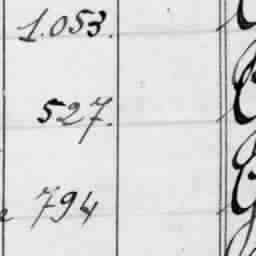 1.053.
527.
794